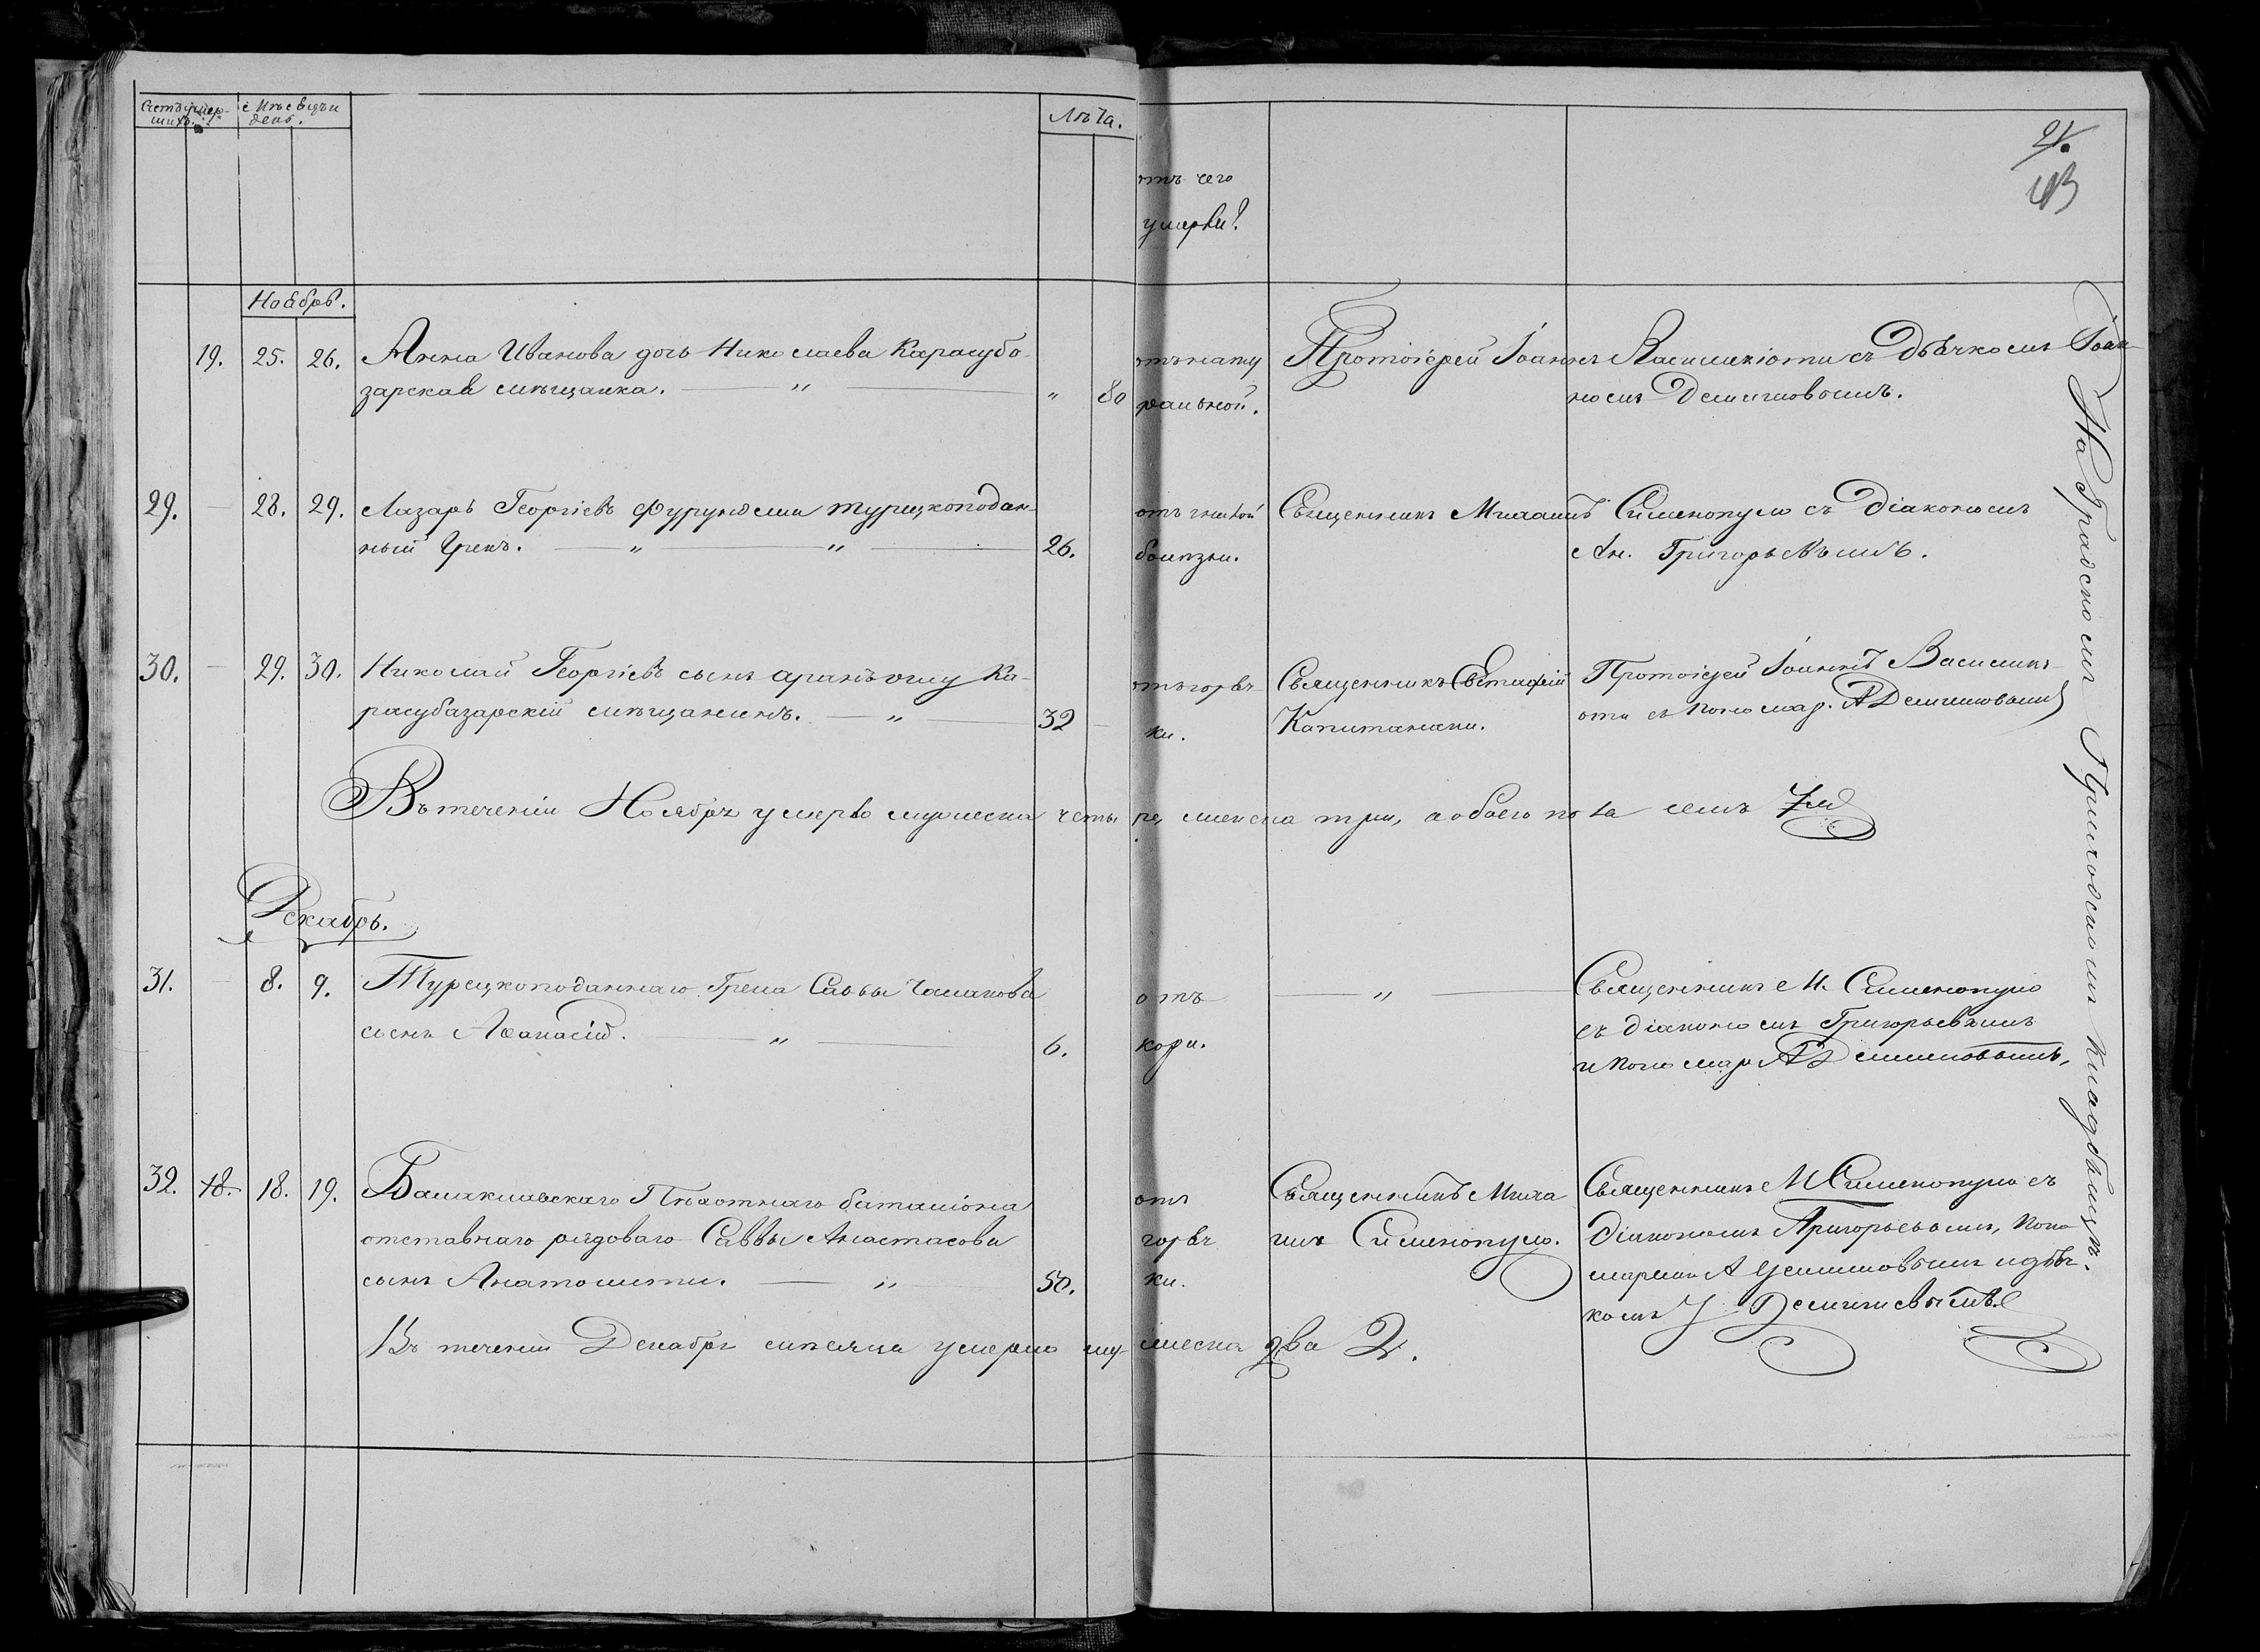 Счетъ умер- с Мѣсецъ и
шихъ. день.
Лѣта.
отъ чего
умерли?
21.
Ноябрь.
19. 25. 26. Анна Иванова дочь Николаева Карасубо-
зарская мѣщанка. — „ — „ 80
отъ нату
ральной.
Протоіерей Іоаннъ Василикіоти съ Дьячкомъ Іоан
номъ Демишовымъ.
29. — 28. 29. Лазарь Георгіевъ Фурунджи турецкоподан-
ный Грекъ. — „ — „ — 26.
отъ гнилой
болѣзни.
Священникъ Михаилъ Сименопуло съ Діакономъ
Ан. Григорьевымъ.
30. — 29. 30. Николай Георгіевъ сынъ Ка-
расубазарскій мѣщанинъ. — „ — 32 —
отъ горяч-
ки.
Священникъ Евстафій
Капитанаки.
Протоіерей Іоаннъ Василикі-
оти съ Пономар. А Демишовымъ
Въ теченіи Ноября умерло мужеска четы ре, женска три, а обоего пола семь 7м
Декабрь.
31. — 8. 9. Турецкоподаннаго Грека Саввы Чалакова
сынъ Аѳанасій. — „ — 6.
отъ
кори.
— „ —
Священникъ М. Сименопуло
съ діакономъ Григорьевымъ
и Пономар А Демишовымъ,
32. 18. 18. 19. Балаклавскаго Пѣхотнаго баталіона
отставнаго рядоваго Саввы Анастасова
сынъ Анатолити. — „ — 50.
отъ
горяч
ки.
Священникъ Миха
илъ Сименопуло.
Священникъ М Сименопуло съ
Діакономъ Григорьевымъ, Поно
маремъ А Демишовымъ и дьяч-
комъ І Демишевымъ.
Въ теченіи Декабря мѣсяца умерло му- жеска два 2.
На Градскомъ Приходскомъ Кладбищѣ